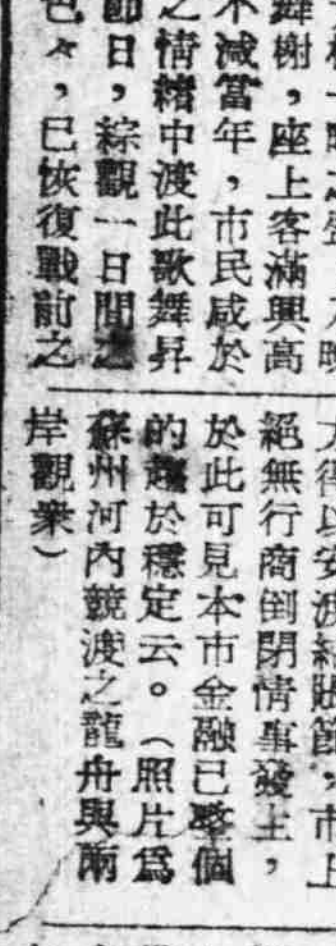 舞榭，座上客滿興高
不減當年，市民咸於
之情緒中渡此歌舞昇
節日，綜觀一日間之
色々，已恢復戰前之
絕無行商倒閉情事發生，
於此可見本市金融已整個
的趨於穩定云。（照片爲
蘇州河內競渡之龍舟與兩
岸觀衆）